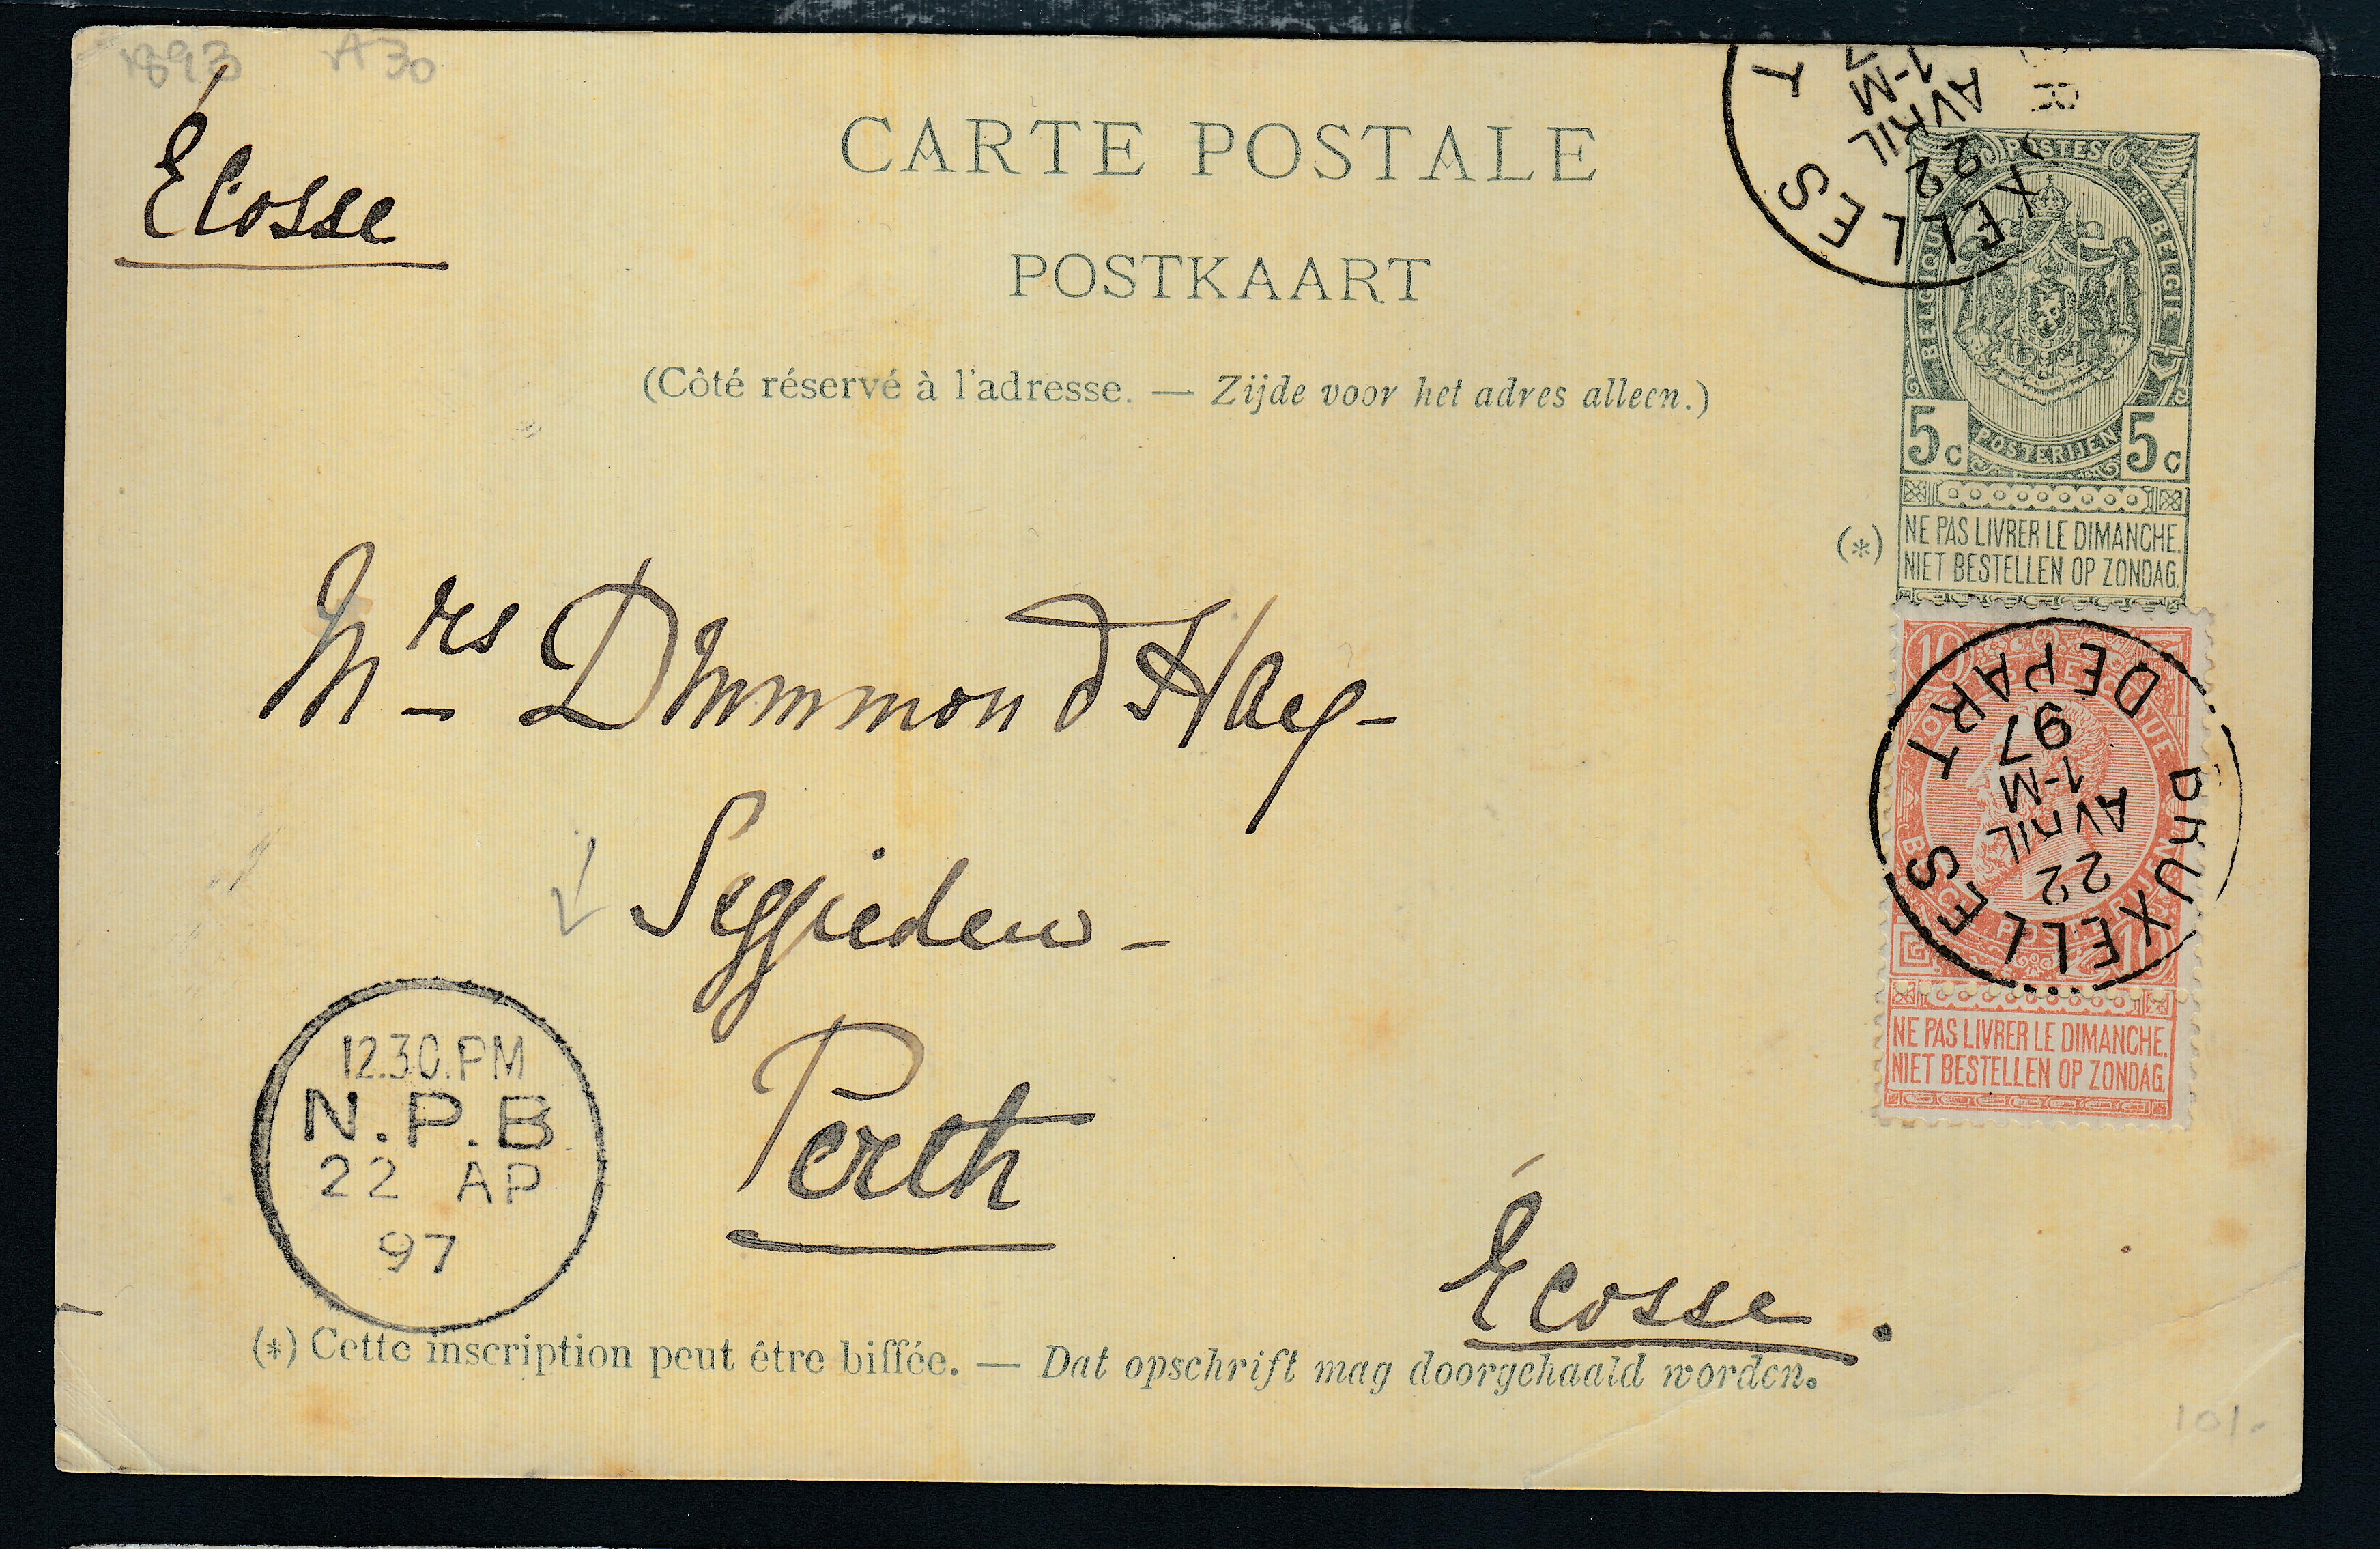 1893 A30
Écosse
CARTE POSTALE
POSTKAART
(Côté réservé à l'adresse. — Zijde voor het adres alleen.)
XELLES
T
22
AVRIL
1-M
7
POSTES
BELGIQUE BELGIE
POSTERIJEN
5c 5c
(*) NE PAS LIVRER LE DIMANCHE.
NIET BESTELLEN OP ZONDAG.
Mrs Drummond Hay-
Seggieden -
Perth
Écosse.
10 10
BRUXELLES
DEPART
22
AVRIL
1-M
97
NE PAS LIVRER LE DIMANCHE.
NIET BESTELLEN OP ZONDAG.
12.30.PM
N.P.B
22 AP
97
(*) Cette inscription peut être biffée. — Dat opschrift mag doorgehaald worden.
10/-